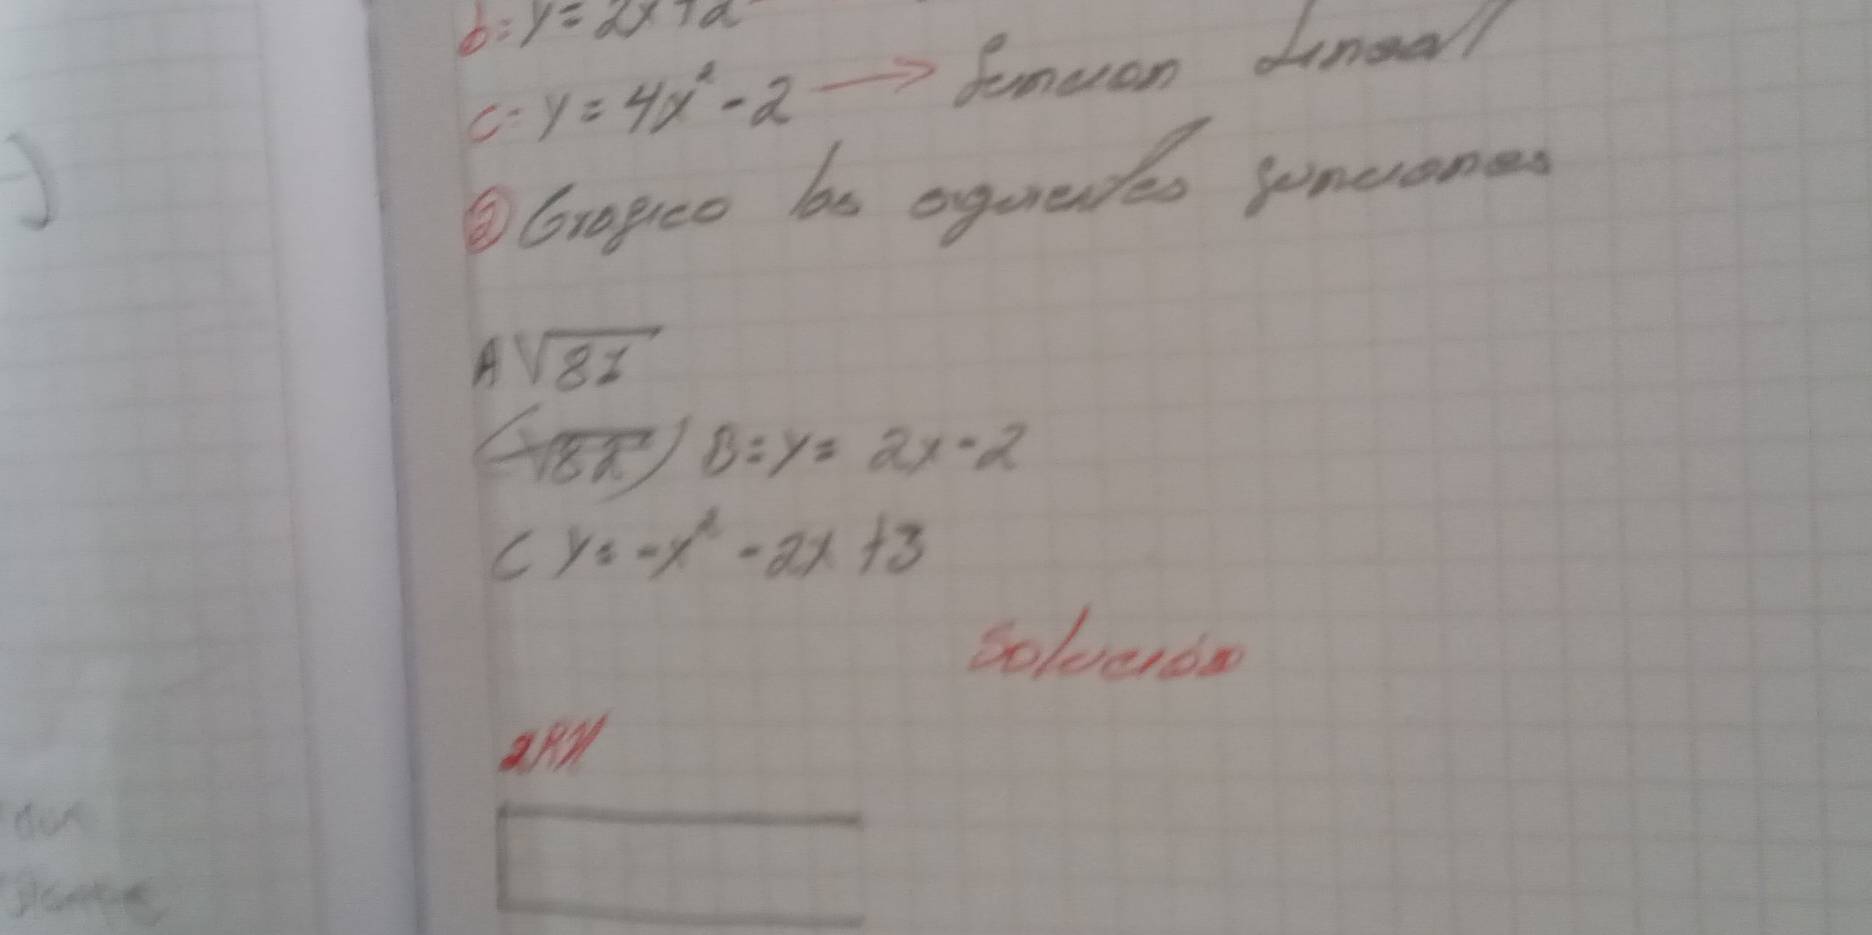 b: y = 2x + 2
c: y = 4x² - 2 → Funcion Lineal
② Grafico las siguientes funciones
A √81
(√82) B: y = 2x - 2
C y = -x² - 2x + 3
Solución